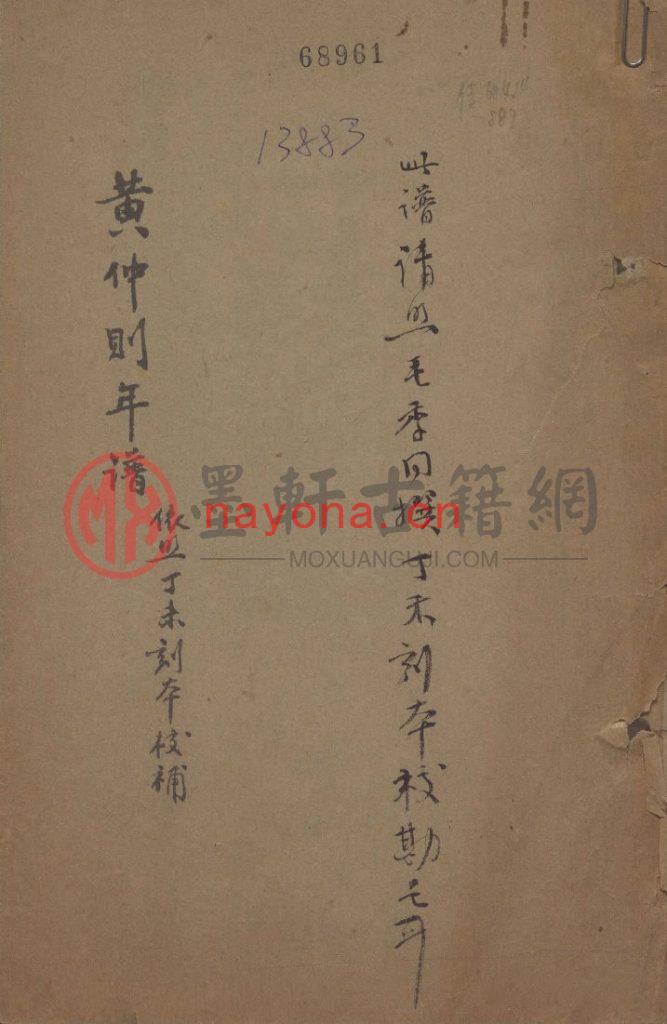 68961
13883
此譜請照毛季同撰丁未刻本校勘
黄仲則年譜
依照丁未刻本校補
墨軒古籍網
nayona.cn
MOXUANGUJI.COM